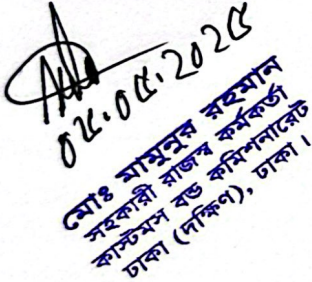 ০৫.০৫.২০২৫
মোঃ মামুনুর রহমান
সহকারী রাজস্ব কর্মকর্তা
কাস্টমস বন্ড কমিশনারেট
ঢাকা (দক্ষিণ), ঢাকা।